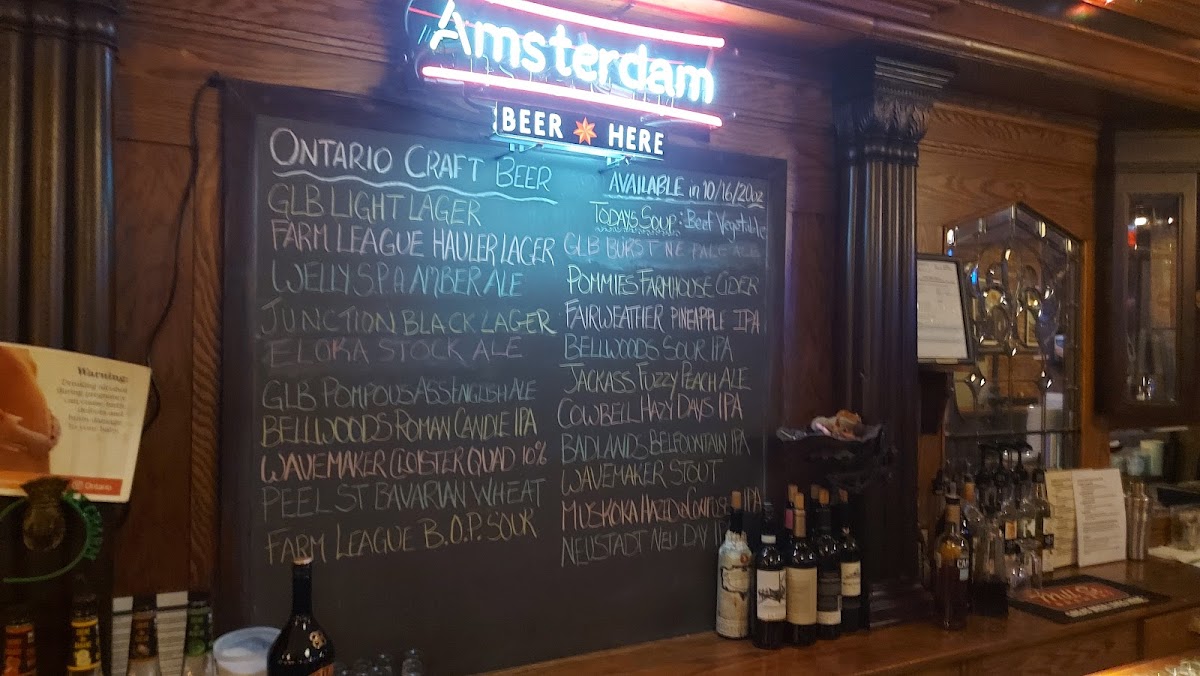 Amsterdam
BEER HERE
ONTARIO CRAFT BEER
GLB LIGHT LAGER
FARM LEAGUE HAULER LAGER
WELLY S.P AMBER ALE
JUNCTION BLACK LAGER
ELORA STOCK ALE
GLB POMPOUS ASS ENGLISH ALE
BELLWOODS ROMAN CANDLE IPA
WAVEMAKER CLOISTER QUAD 10%
PEEL ST BAVARIAN WHEAT
FARM LEAGUE B.O.P. SOUR
AVAILABLE in 10/16/20oz
TODAYS SOUP: Beef Vegetable
GLB BURST NE PALE ALE
POMMIES FARMHOUSE CIDER
FAIRWEATHER PINEAPPLE IPA
BELLWOODS SOUR IPA
JACKASS FUZZY PEACH ALE
COWBELL HAZY DAYS IPA
BADLANDS BELFOUNTAIN IPA
WAVEMAKER STOUT
MUSKOKA HAZED N CONFUSE IPA
NEUSTADT NEU DAY
Warning:
Drinking alcohol
during pregnancy
can cause birth
defects and
brain damage
to your baby.
Ontario